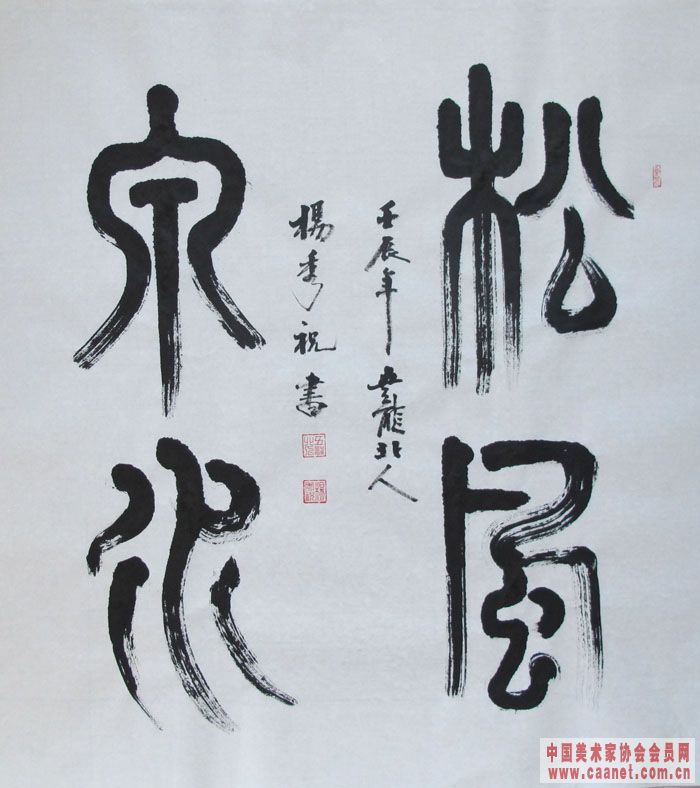 松风
泉水
壬辰年五龙北人
楊秀祝書
中国美术家协会会员网
www.caanet.com.cn